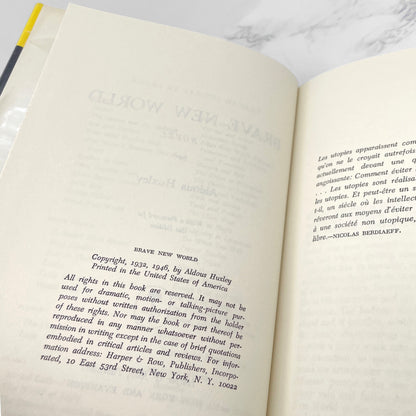 BRAVE NEW WORLD
Copyright, 1932, 1946, by Aldous Huxley
Printed in the United States of America
All rights in this book are reserved. It may not be
used for dramatic, motion- or talking-picture pur-
poses without written authorization from the holder
of these rights. Nor may the book or part thereof be
reproduced in any manner whatsoever without per-
mission in writing except in the case of brief quotations
embodied in critical articles and reviews. For infor-
mation address: Harper & Row, Publishers, Incorpo-
rated, 10 East 53rd Street, New York, N. Y. 10022
Les utopies apparaissent com
qu'on se le croyait autrefois
actuellement devant une q
angoissante: Comment éviter
. . . Les utopies sont réalisa
les utopies. Et peut-être un s
t-il, un siècle où les intellec
rêveront aux moyens d'éviter
à une société non utopique,
libre.—NICOLAS BERDIAEFF.